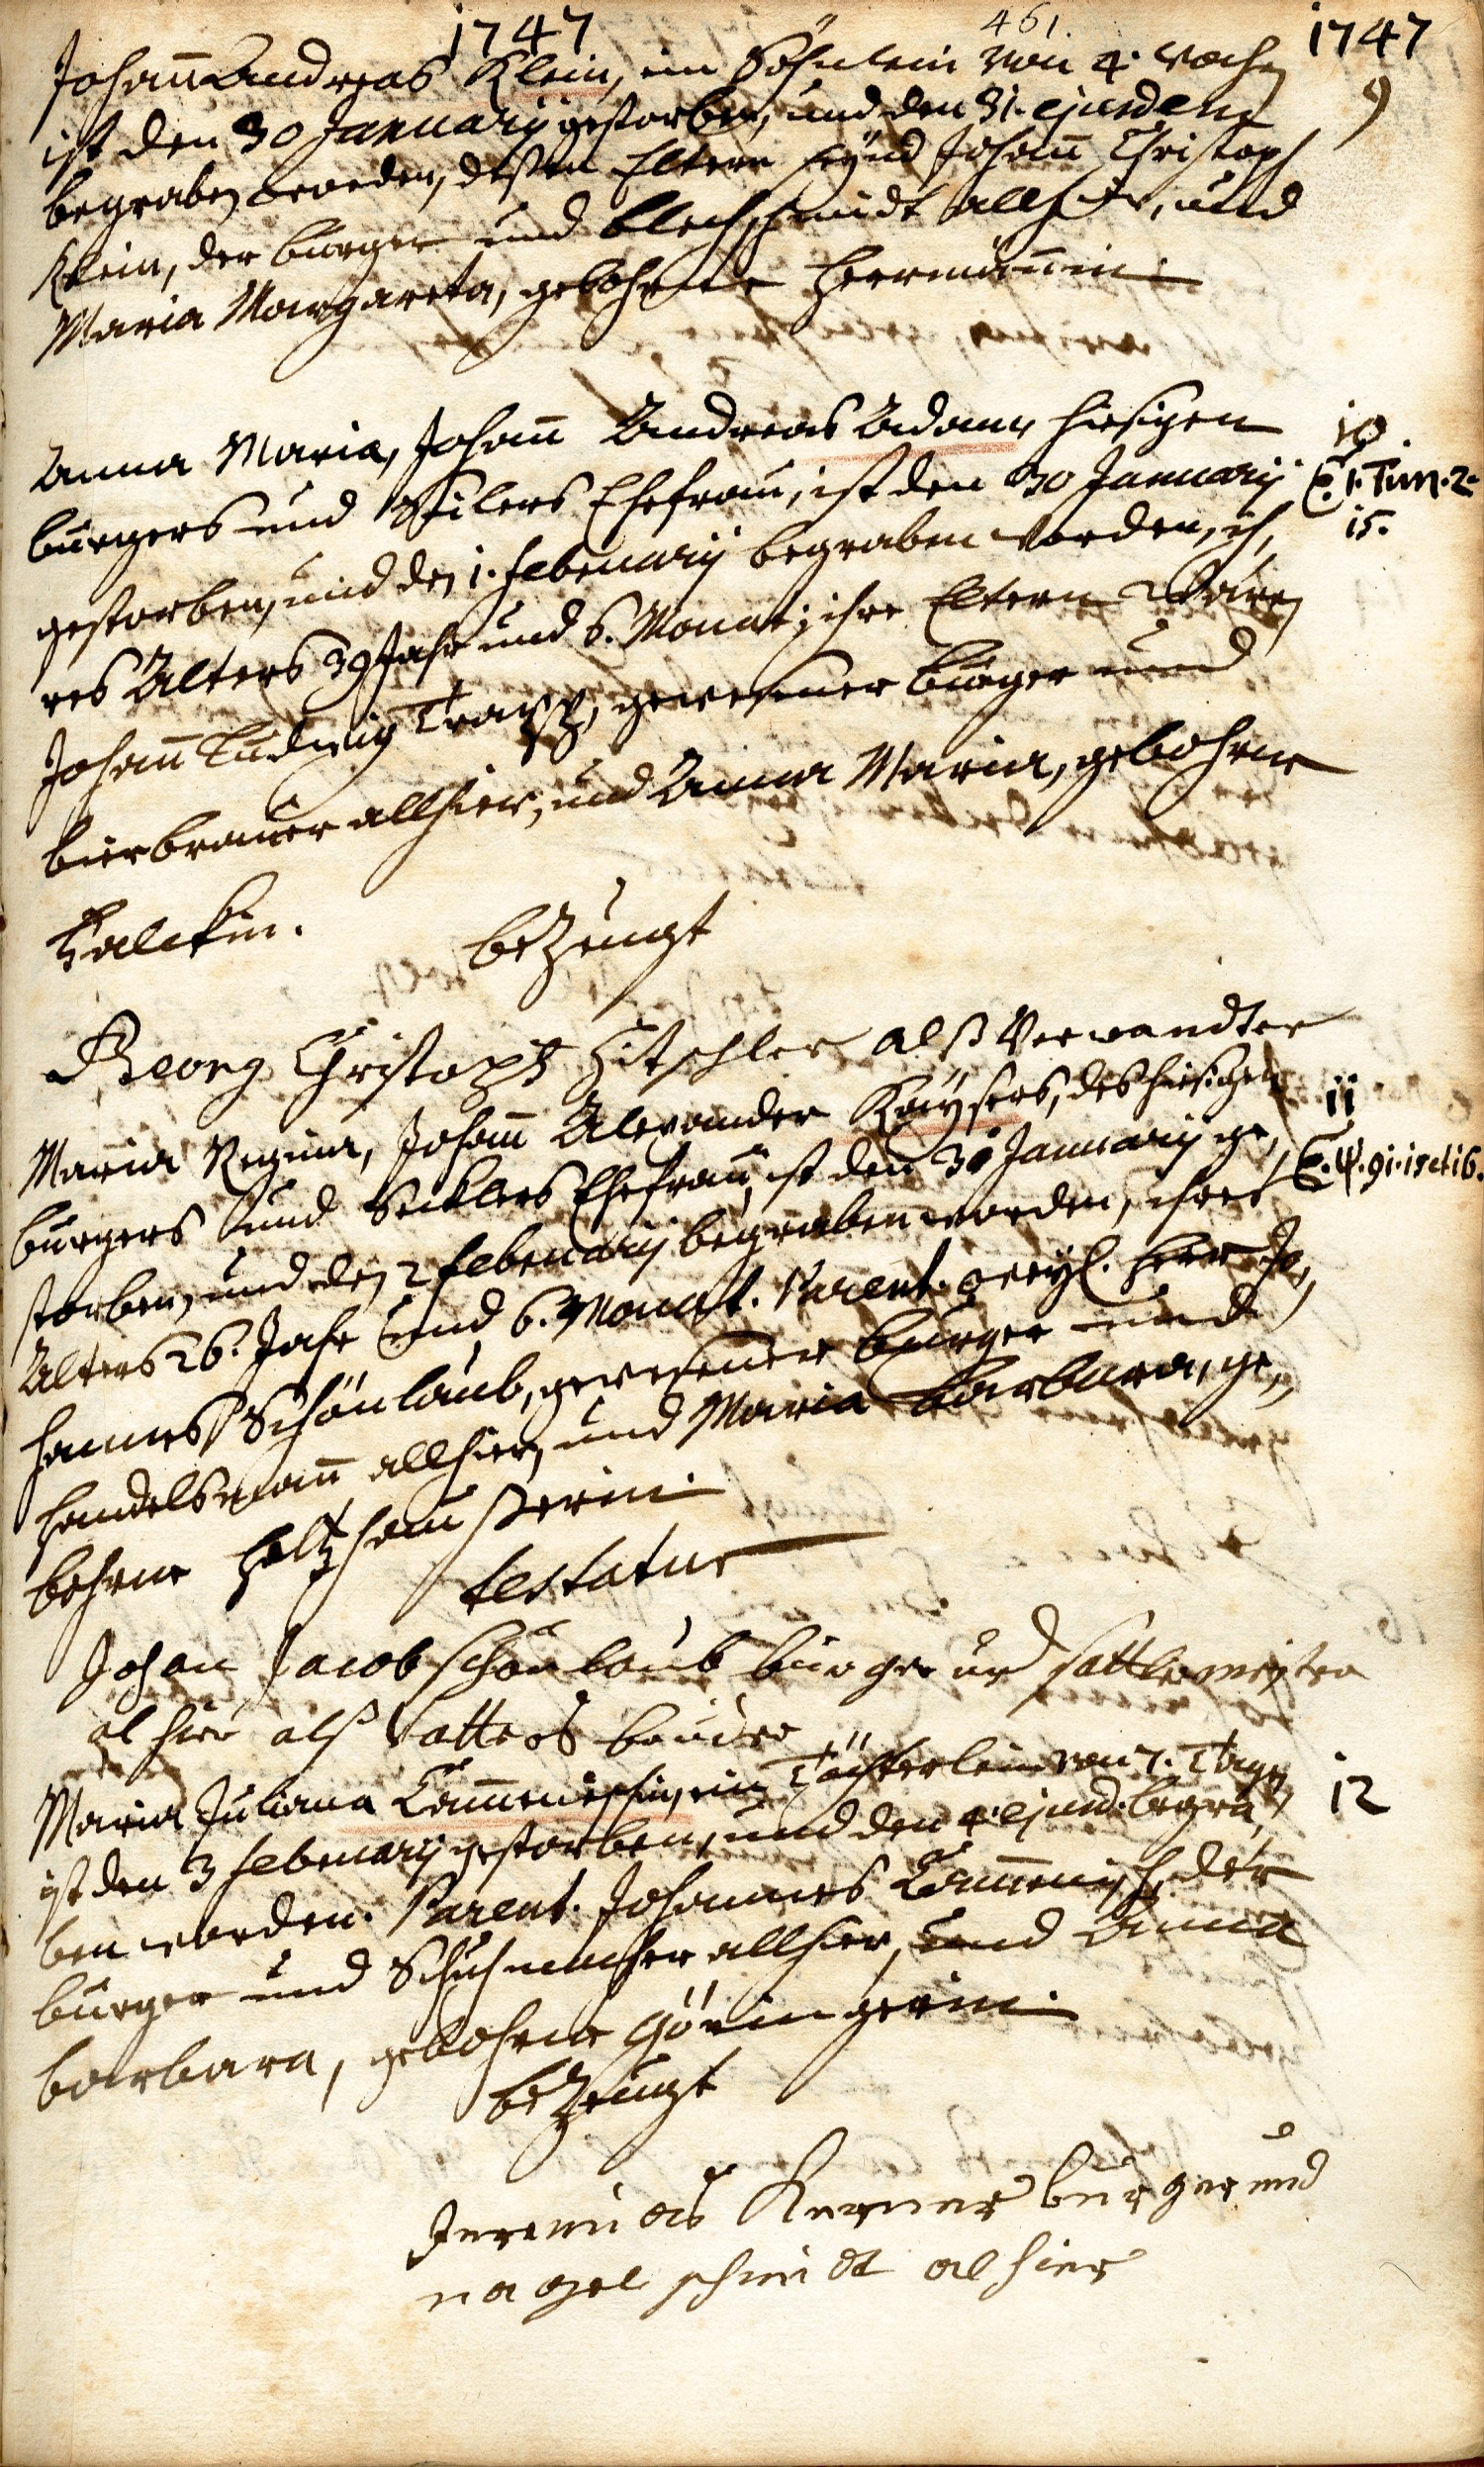 1747 461. 1747
Johann Andreas Klein, ein Söhnlein von 4. Wochen 9
ist den 30 Januarij gestorben, und den 31. ejusdem
begraben worden, deßen Eltern seynd Johann Christoph
Klein, der burger und blechschmidt allhier, und
Maria Margareta, gebohrne Hermännin.
Anna Maria, Johann Andreas Adams hiesigen 10.
burgers und Seilers Ehefrau, ist den 30 Januarij T. 1. Tim. 2.
gestorben, und den 1. Februarij begraben worden, ih, 15.
res Alters 39 Jahr und 6. Monat; ihre Eltern waren
Johann Ludwig Trapp, gewesener burger und
bierbrauer allhier, und Anna Maria, gebohrne
Falckin. bezeugt
Georg Christoph Hitschler alß Verwandter
Maria Regina, Johann Alexander Kaysers, des hiesigen 11
burgers und Secklers Ehefrau, ist den 30 Januarij ge, T. ψ. 91. 15 et 16.
storben, und den 2 Februarij begraben worden, ihres
Alters 26. Jahr und 6. Monat. Parent. weyl. Herr Jo,
hannes Schönlaub, gewesener burger und
handelsmann allhier, und Maria Barbara, ge,
bohrne Holtzhaußerin.
testatur
Johan Jacob schönlaub burger und sattlermeister
alhier alß Vatters bruder
Maria Juliana, ein Töchterlein von 7. Tagen 12
ist den 3 Februarij gestorben, und den 4. ejusd. begra,
ben worden. Parent. Johannes der
burger und Schuhmacher allhier, und Anna
barbara, gebohrne Göringerin.
bezeugt
Jeremias Kerner burger und
nagel schmidt alhier